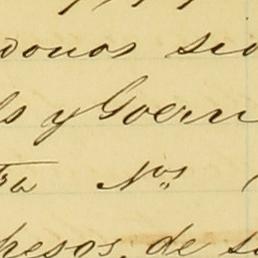 donos sid
ls y Goern
Nos
pesos, de s